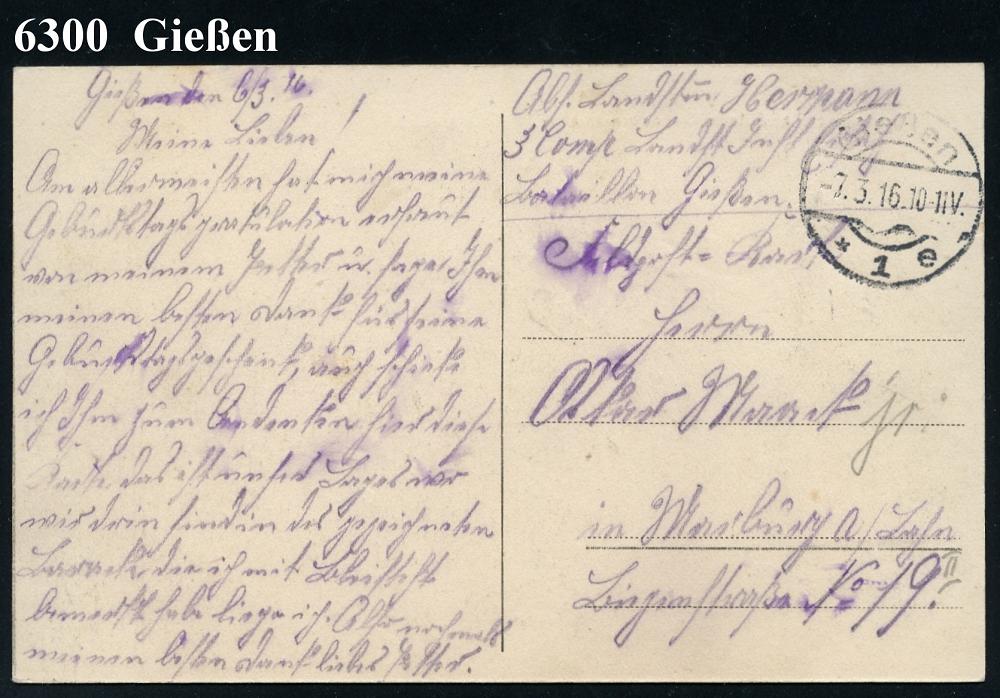 6300 Gießen
Gießen den 6/3. 16.
Meine Lieben!
Am allermeisten hat mich meine
Gebuhtstags gratulation erfreut
von meinem Petter u. sage Ihm
meinen besten Dank für seine
Gebuhrtstagsgeschenk, auch schicke
ich Ihm zum Andenken hier diese
Karte das ist unser Lager wo
wir drin sind in der gezeichneten
Baracke die ich mit Bleistift
bemerkt habe liege ich. Also nochmals
meinen besten Dank liebes Petter.
Abs. Landstm. Hermann
3 Comp Landst Inft
Bataillon Gießen
Feldpost=Karte
Herrn
Oskar Maack jr.
in Marburg a/Lahn
Biegenstraße No 19 II
Gießen
-7.3.16.10-11V.
* 1 e